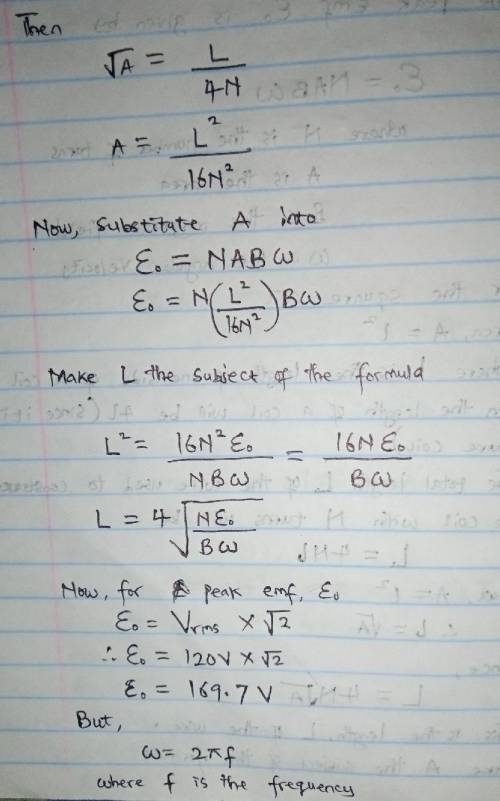 Then
√A = L / 4N
A = L² / 16N²
Now, substitute A into
Ɛ₀ = NABω
Ɛ₀ = N(L² / 16N²)Bω
Make L the subject of the formula
L² = 16N²Ɛ₀ / N.Bω = 16NƐ₀ / Bω
L = 4√(NƐ₀ / Bω)
Now, for peak emf, Ɛ₀
Ɛ₀ = Vrms × √2
∴ Ɛ₀ = 120V × √2
Ɛ₀ = 169.7 V
But,
ω = 2πf
where f is the frequency